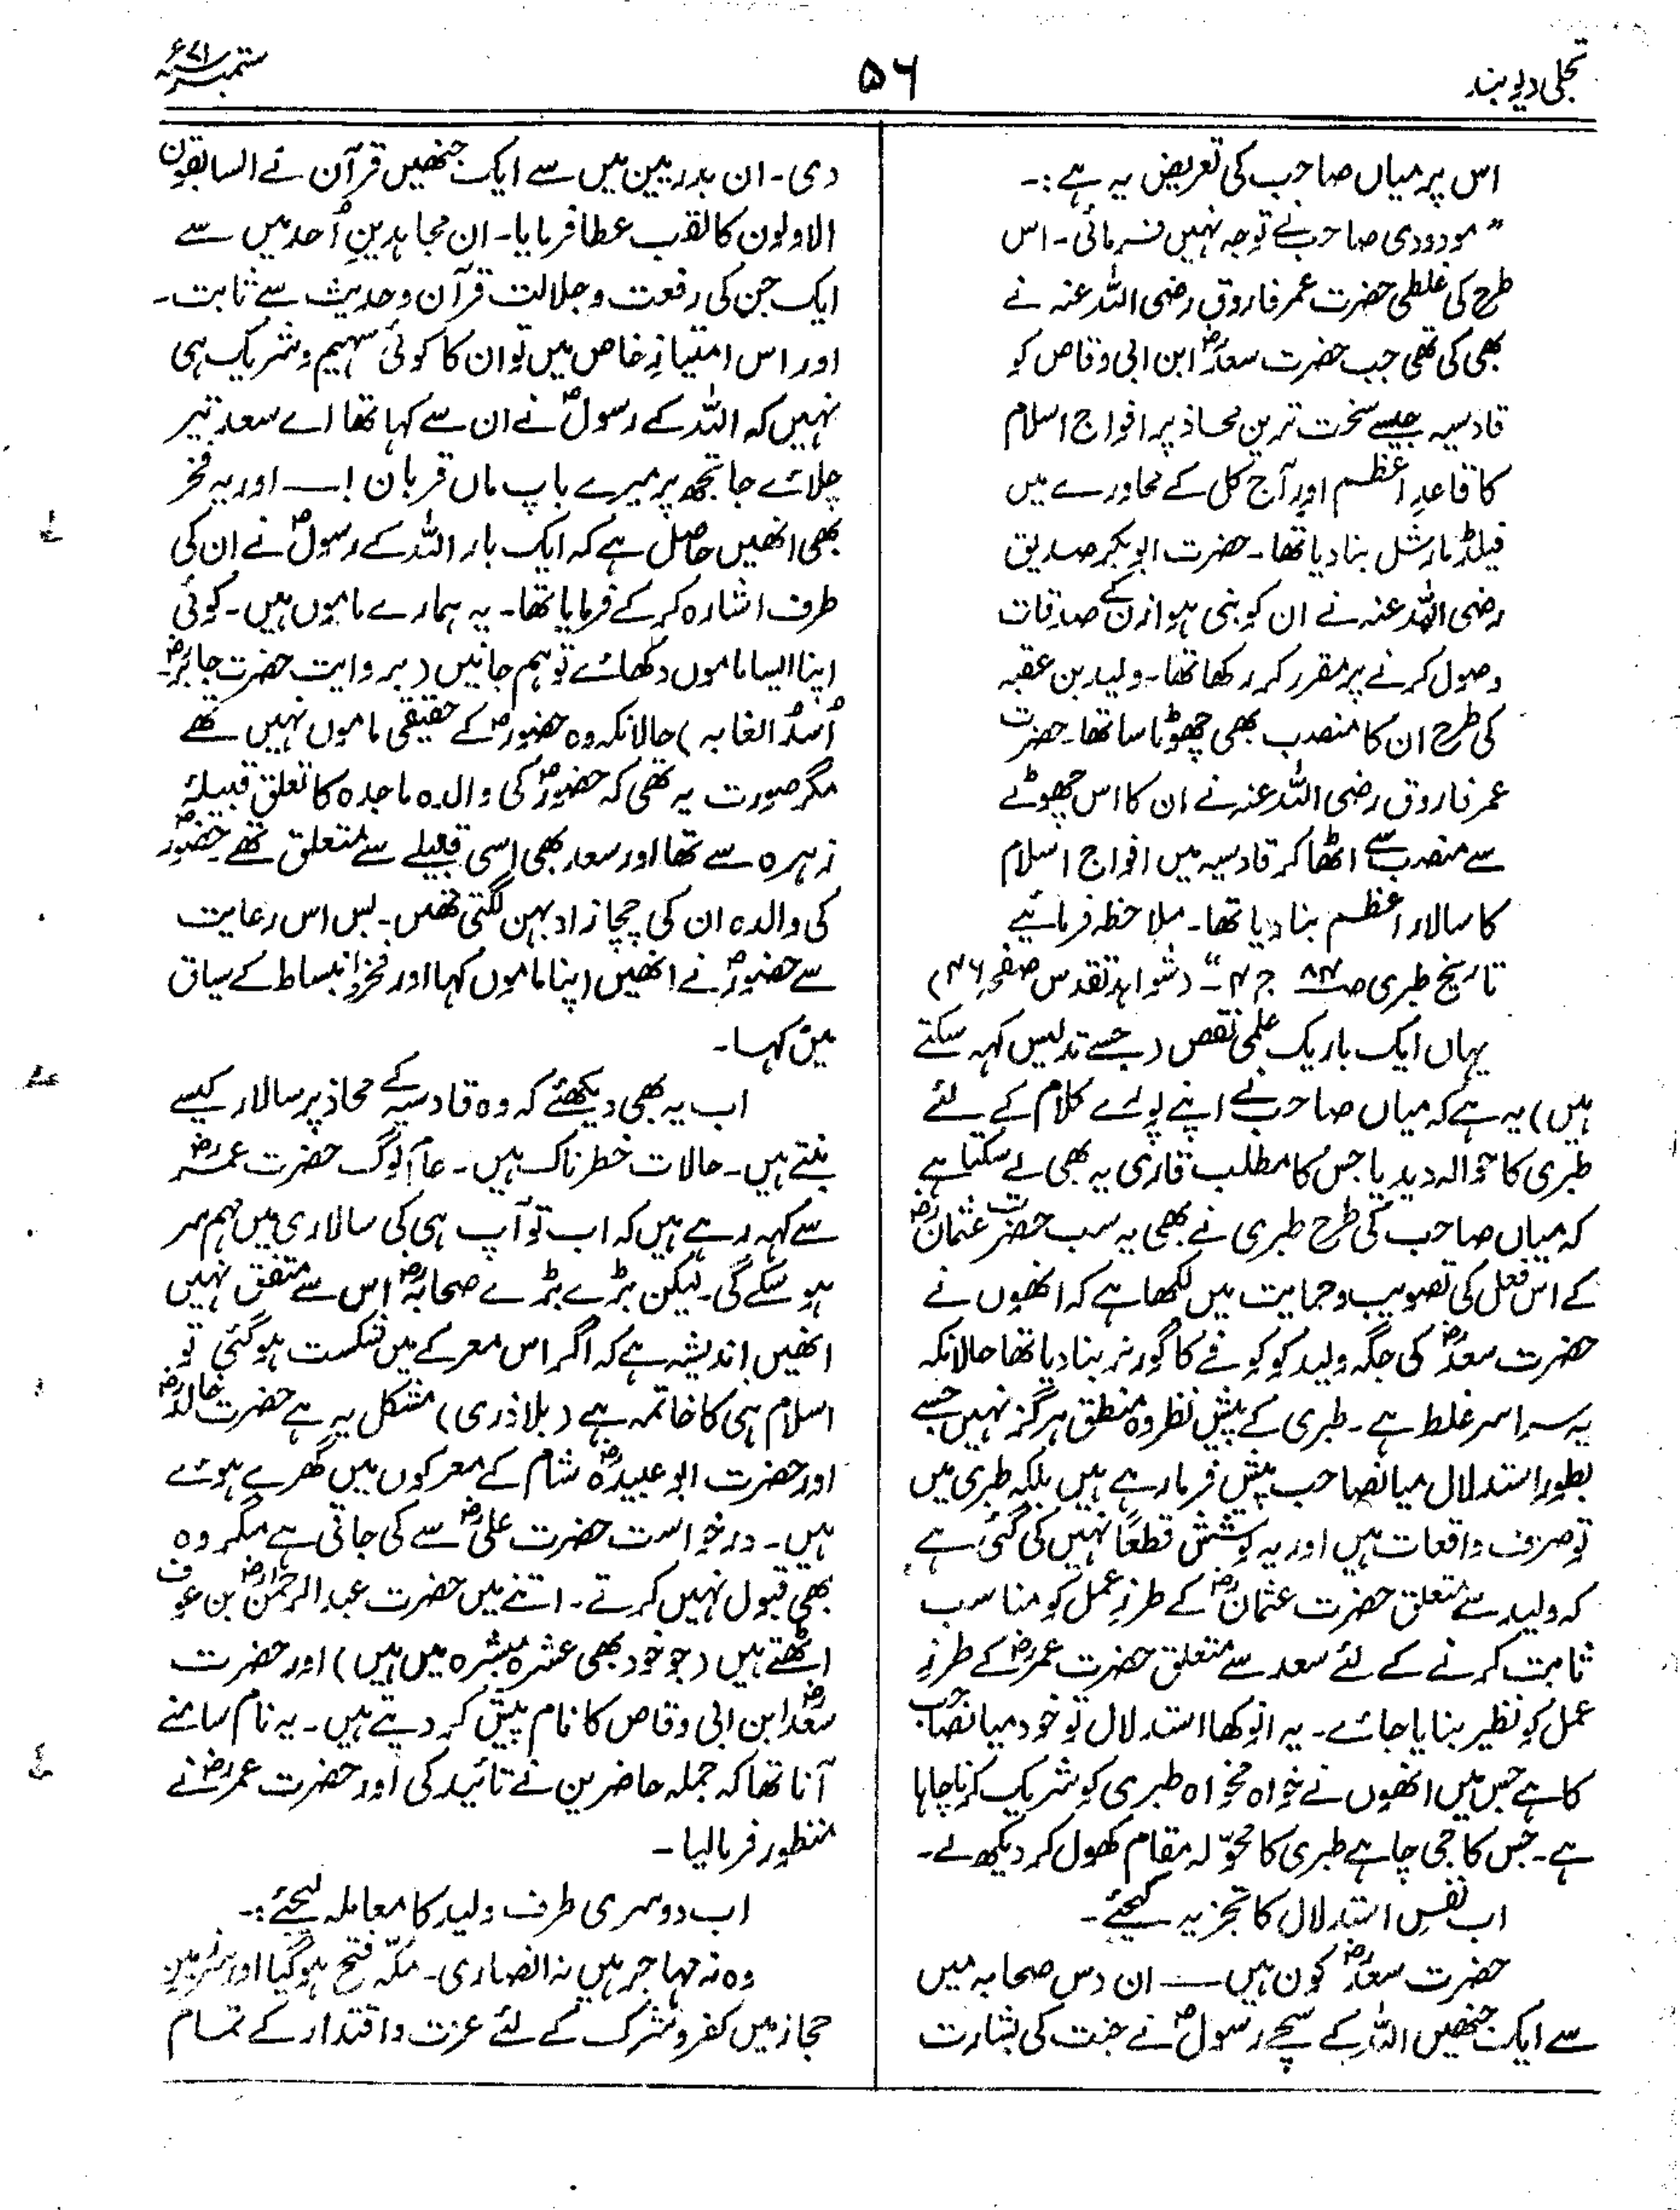 تجلی دیوبند
۵۶
ستمبر ۷۱ء
اس پر میاں صاحب کی تعریض یہ ہے:۔
"مودودی صاحب نے توجہ نہیں فرمائی۔ اس
طرح کی غلطی حضرت عمر فاروق رضی اللہ عنہ نے
بھی کی تھی جب حضرت سعدؓ ابن ابی وقاص کو
قادسیہ جیسے سخت ترین محاذ پر افواج اسلام
کا قاعدِ اعظم اور آج کل کے محاورے میں
فیلڈ مارشل بنا دیا تھا۔ حضرت ابوبکر صدیق
رضی اللہ عنہ نے ان کو بنی ہوازن کے صدقات
وصول کرنے پر مقرر کر رکھا تھا۔ ولید بن عقبہ
کی طرح ان کا منصب بھی چھوٹا سا تھا۔ حضرت
عمر فاروق رضی اللہ عنہ نے ان کا اس چھوٹے
سے منصب سے اٹھا کر قادسیہ میں افواج اسلام
کا سالار اعظم بنا دیا تھا۔ ملاحظہ فرمائیے
تاریخ طبری صـ۸۴ جـ۴۔" (شواہد تقدس صفحہ ۴۶)
یہاں ایک باریک علمی نقص (جسے تدلیس کہہ سکتے
ہیں) یہ ہے کہ میاں صاحب نے اپنے پورے کلام کے لئے
طبری کا حوالہ دیدیا جس کا مطلب قاری یہ بھی لے سکتا ہے
کہ میاں صاحب کی طرح طبری نے بھی یہ سب حضرت عثمانؓ
کے اس فعل کی تصویب و حمایت میں لکھا ہے کہ انھوں نے
حضرت سعدؓ کی جگہ ولید کو کوفے کا گورنر بنا دیا تھا حالانکہ
یہ سراسر غلط ہے۔ طبری کے پیش نظر وہ منطق ہرگز نہیں جسے
بطور استدلال میانصاحب پیش فرما رہے ہیں بلکہ طبری میں
تو صرف واقعات ہیں اور یہ کوشش قطعاً نہیں کی گئی ہے
کہ ولید سے متعلق حضرت عثمانؓ کے طرزِ عمل کو مناسب
ثابت کرنے کے لئے سعد سے متعلق حضرت عمرؓ کے طرزِ
عمل کو نظیر بنایا جائے۔ یہ انوکھا استدلال تو خود میانصاحب
کا ہے جس میں انھوں نے خواہ مخواہ طبری کو شریک کرنا چاہا
ہے۔ جس کا جی چاہے طبری کا محوّلہ مقام کھول کر دیکھ لے۔
اب نفسِ استدلال کا تجزیہ کیجئے۔
حضرت سعدؓ کون ہیں ــــ ان دس صحابہ میں
سے ایک جنھیں اللہ کے سچے رسولؐ نے جنت کی بشارت
دی۔ ان بدریین میں سے ایک جنھیں قرآن نے السابقون
الاولون کا لقب عطا فرمایا۔ ان مجاہدینِ اُحد میں سے
ایک جن کی رفعت و جلالت قرآن و حدیث سے ثابت۔
اور اس امتیازِ خاص میں تو ان کا کوئی سہیم و شریک ہی
نہیں کہ اللہ کے رسولؐ نے ان سے کہا تھا اے سعد تیر
چلائے جا تجھ پر میرے باپ ماں قربان! ــــ اور یہ فخر
بھی انھیں حاصل ہے کہ ایک بار اللہ کے رسولؐ نے ان کی
طرف اشارہ کر کے فرمایا تھا۔ یہ ہمارے ماموں ہیں۔ کوئی
اپنا ایسا ماموں دکھائے تو ہم جانیں (بروایت حضرت جابرؓ۔
اُسُدُ الغابہ) حالانکہ وہ حضورؐ کے حقیقی ماموں نہیں تھے
مگر صورت یہ تھی کہ حضورؐ کی والدہ ماجدہ کا تعلق قبیلۂ
زہرہ سے تھا اور سعد بھی اسی قبیلے سے متعلق تھے حضورؐ
کی والدہ ان کی چچا زاد بہن لگتی تھیں۔ بس اس رعایت
سے حضورؐ نے انھیں اپنا ماموں کہا اور فخر و انبساط کے سیاق
میں کہا۔
اب یہ بھی دیکھئے کہ وہ قادسیہ کے محاذ پر سالار کیسے
بنتے ہیں۔ حالات خطرناک ہیں۔ عام لوگ حضرت عمرؓ
سے کہہ رہے ہیں کہ اب تو آپ ہی کی سالاری میں مہم سر
ہو سکے گی۔ لیکن بڑے بڑے صحابہؓ اس سے متفق نہیں
انھیں اندیشہ ہے کہ اگر اس معرکے میں شکست ہو گئی تو
اسلام ہی کا خاتمہ ہے (بلاذری) مشکل یہ ہے حضرت خالدؓ
اور حضرت ابو عبیدہؓ شام کے معرکوں میں گھرے ہوئے
ہیں۔ درخواست حضرت علیؓ سے کی جاتی ہے مگر وہ
بھی قبول نہیں کرتے۔ اتنے میں حضرت عبدالرحمٰنؓ بن عوف
اٹھتے ہیں (جو خود بھی عشرہ مبشرہ میں ہیں) اور حضرت
سعدؓ ابن ابی وقاص کا نام پیش کر دیتے ہیں۔ یہ نام سامنے
آنا تھا کہ جملہ حاضرین نے تائید کی اور حضرت عمرؓ نے
منظور فرما لیا۔
اب دوسری طرف ولید کا معاملہ لیجئے:۔
وہ نہ مہاجر ہیں نہ انصاری۔ مکّہ فتح ہو گیا اور سرزمینِ
حجاز میں کفر و شرک کے لئے عزت و اقتدار کے تمام